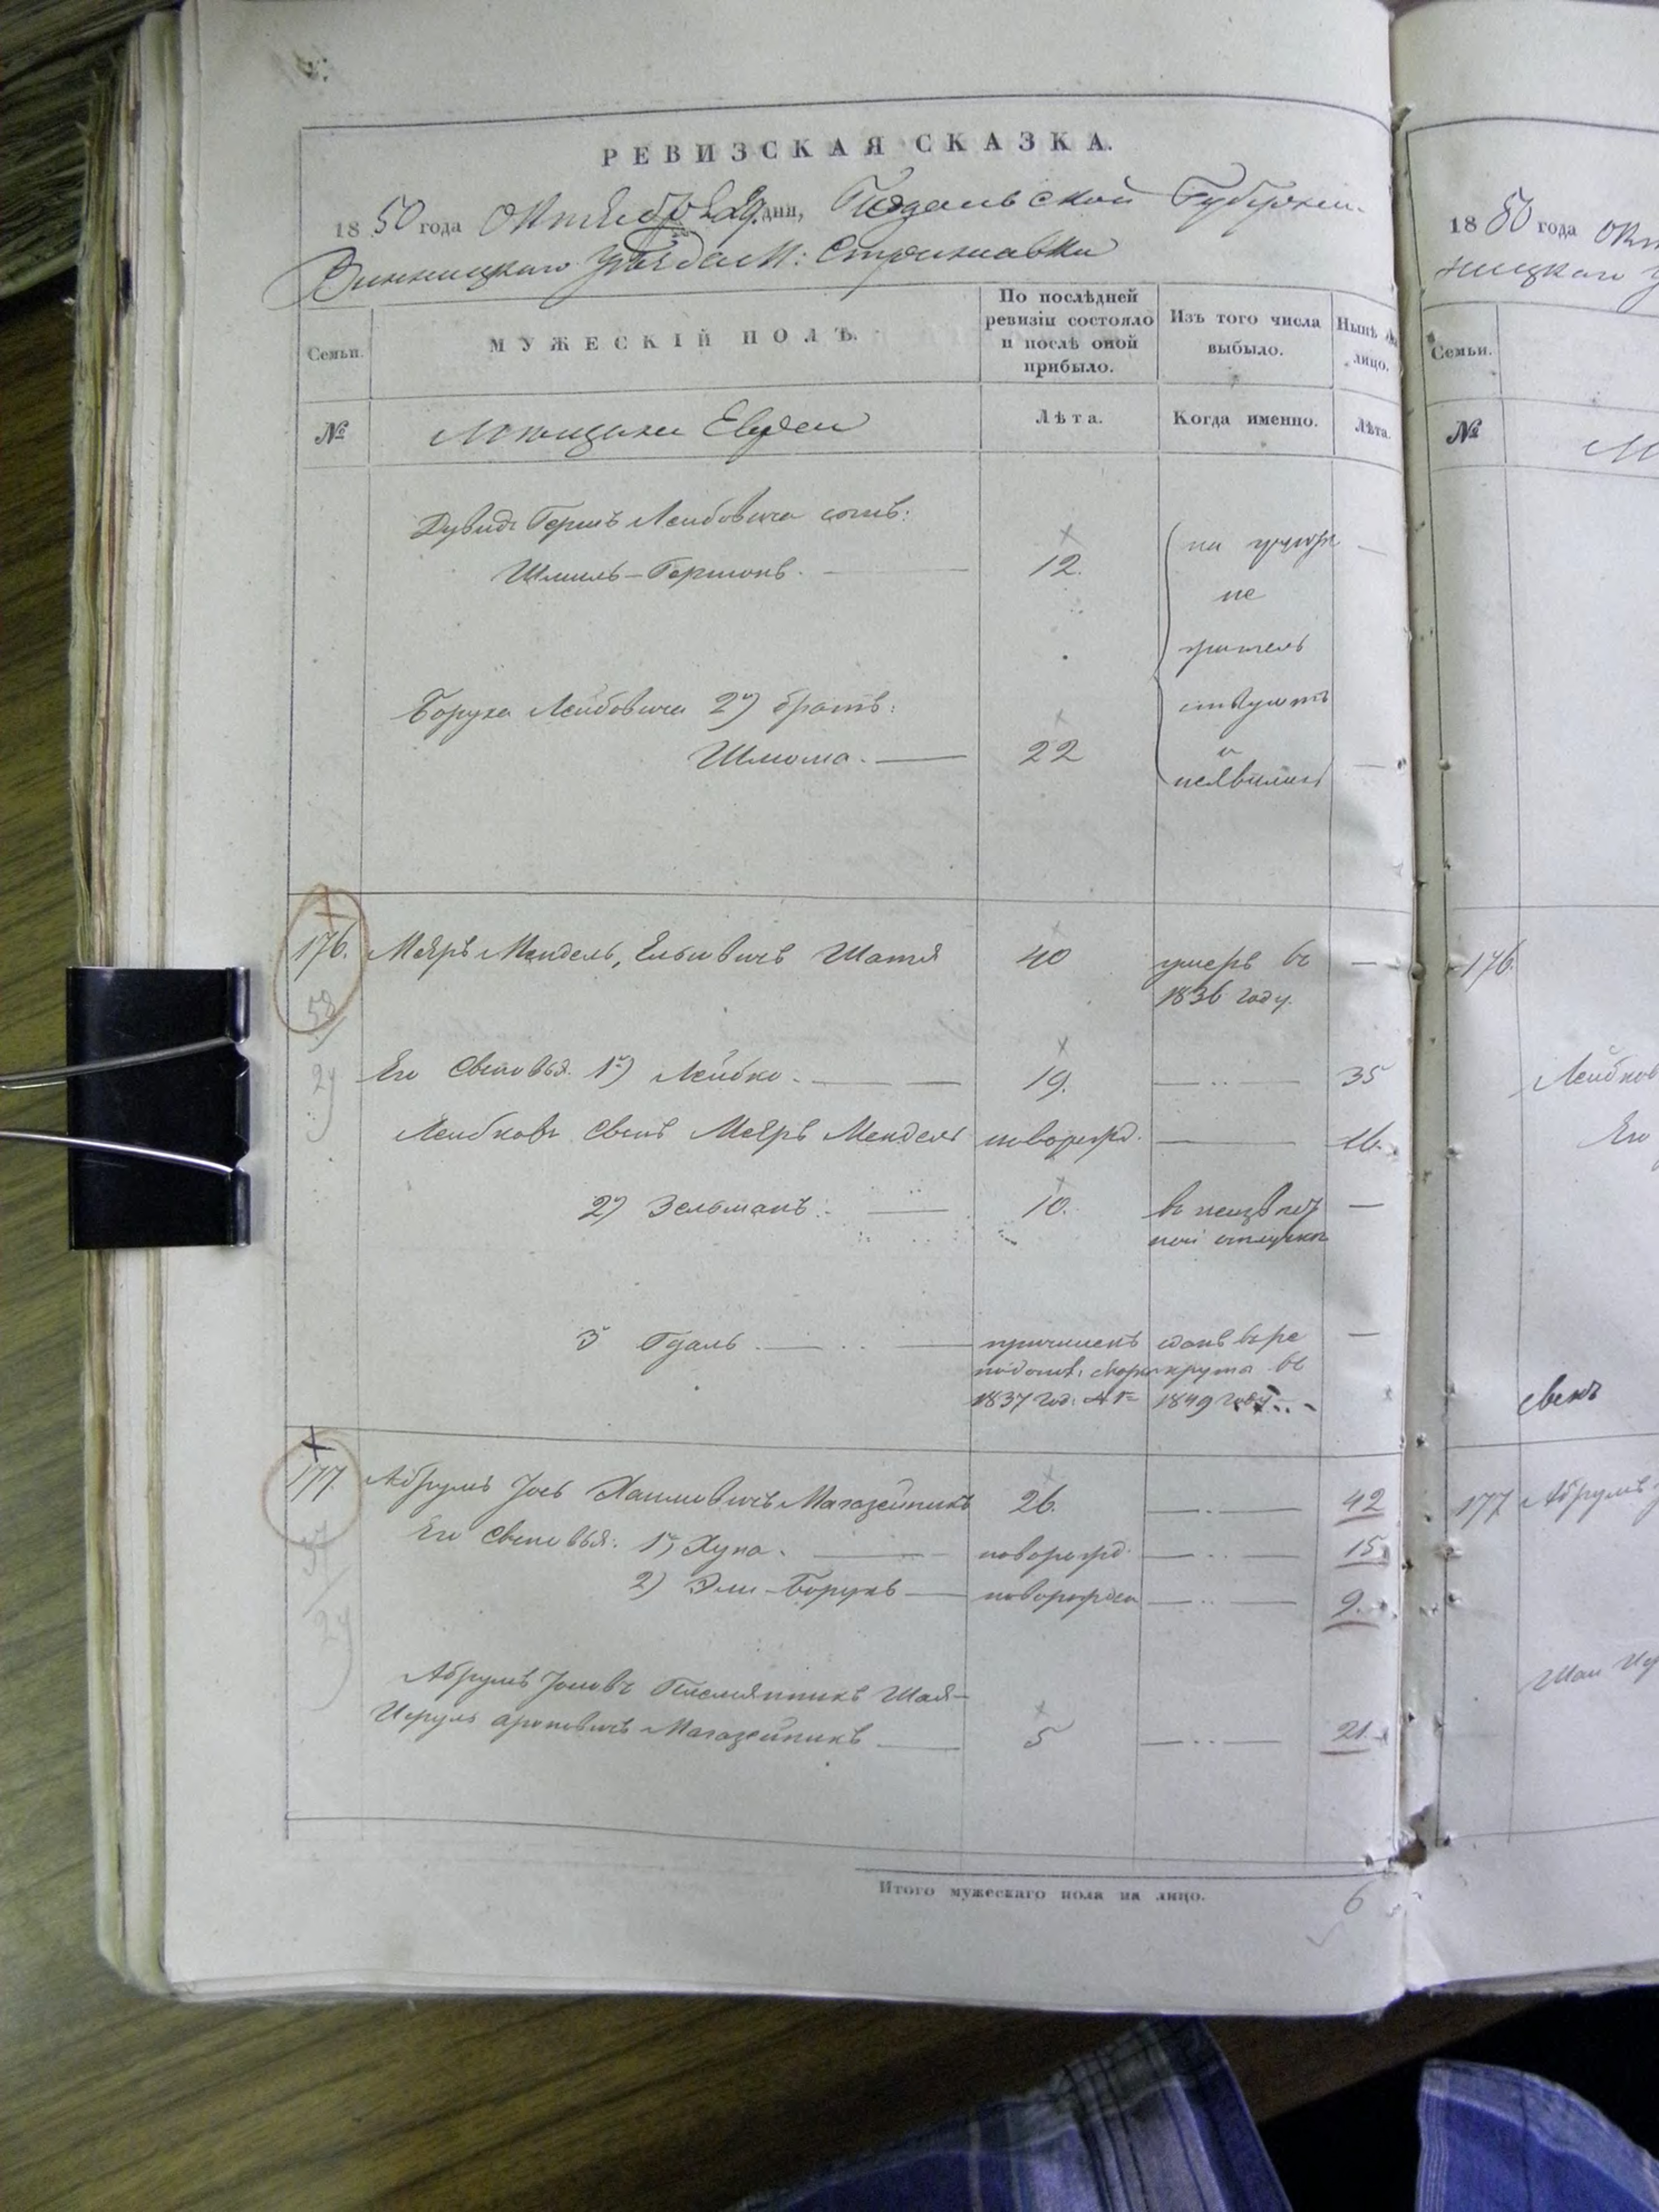 РЕВИЗСКАЯ СКАЗКА.
1850 года Октября 29 дня, Подольской Губернии
Винницкаго Уѣзда М: Стрижавки
Семьи.
МУЖЕСКІЙ ПОЛЪ.
По послѣдней ревизіи состояло и послѣ оной прибыло.
Изъ того числа выбыло.
Нынѣ на лицо.
№
Мѣщане Евреи
Лѣта.
Когда именно.
Лѣта.
Дувидъ Герша Лейбовича сынъ:
Шмиль-Гершонъ.
12.
не
житель
ствуютъ
и
неявились
Боруха Лейбовича 2й братъ:
Шлиома.
22
176. Меяръ Мендель, Ельовичъ Шатя 40 умеръ въ —
1836 году.
Его Сыновья. 1й) Лейбко. 19. 35
Лейбковъ Сынъ Меяръ Мендель новорожд. 16.
2й) Зельманъ. 10. въ неизвѣст —
ной отлучкѣ
3й Гдаль причисленъ сданъ въ ре —
крута въ
1837 год: 1849 году
177. АбрумъJось Хаимовичъ Магазейникъ 26. 42
Его Сыновья: 1й) Хуна. новорожд. 15
2) Эли-Борухъ новорожден 9.
Абрумъ Jосiовъ Племянникъ Шая-
Исруль ароновичъ Магазейникъ 5 21.
Итого мужескаго пола на лицо. 6
1850 года Окт
ницкаго У
Семьи.
№
М
176.
Лейбков
Его
сынъ
177 Абрумъ
Шаи